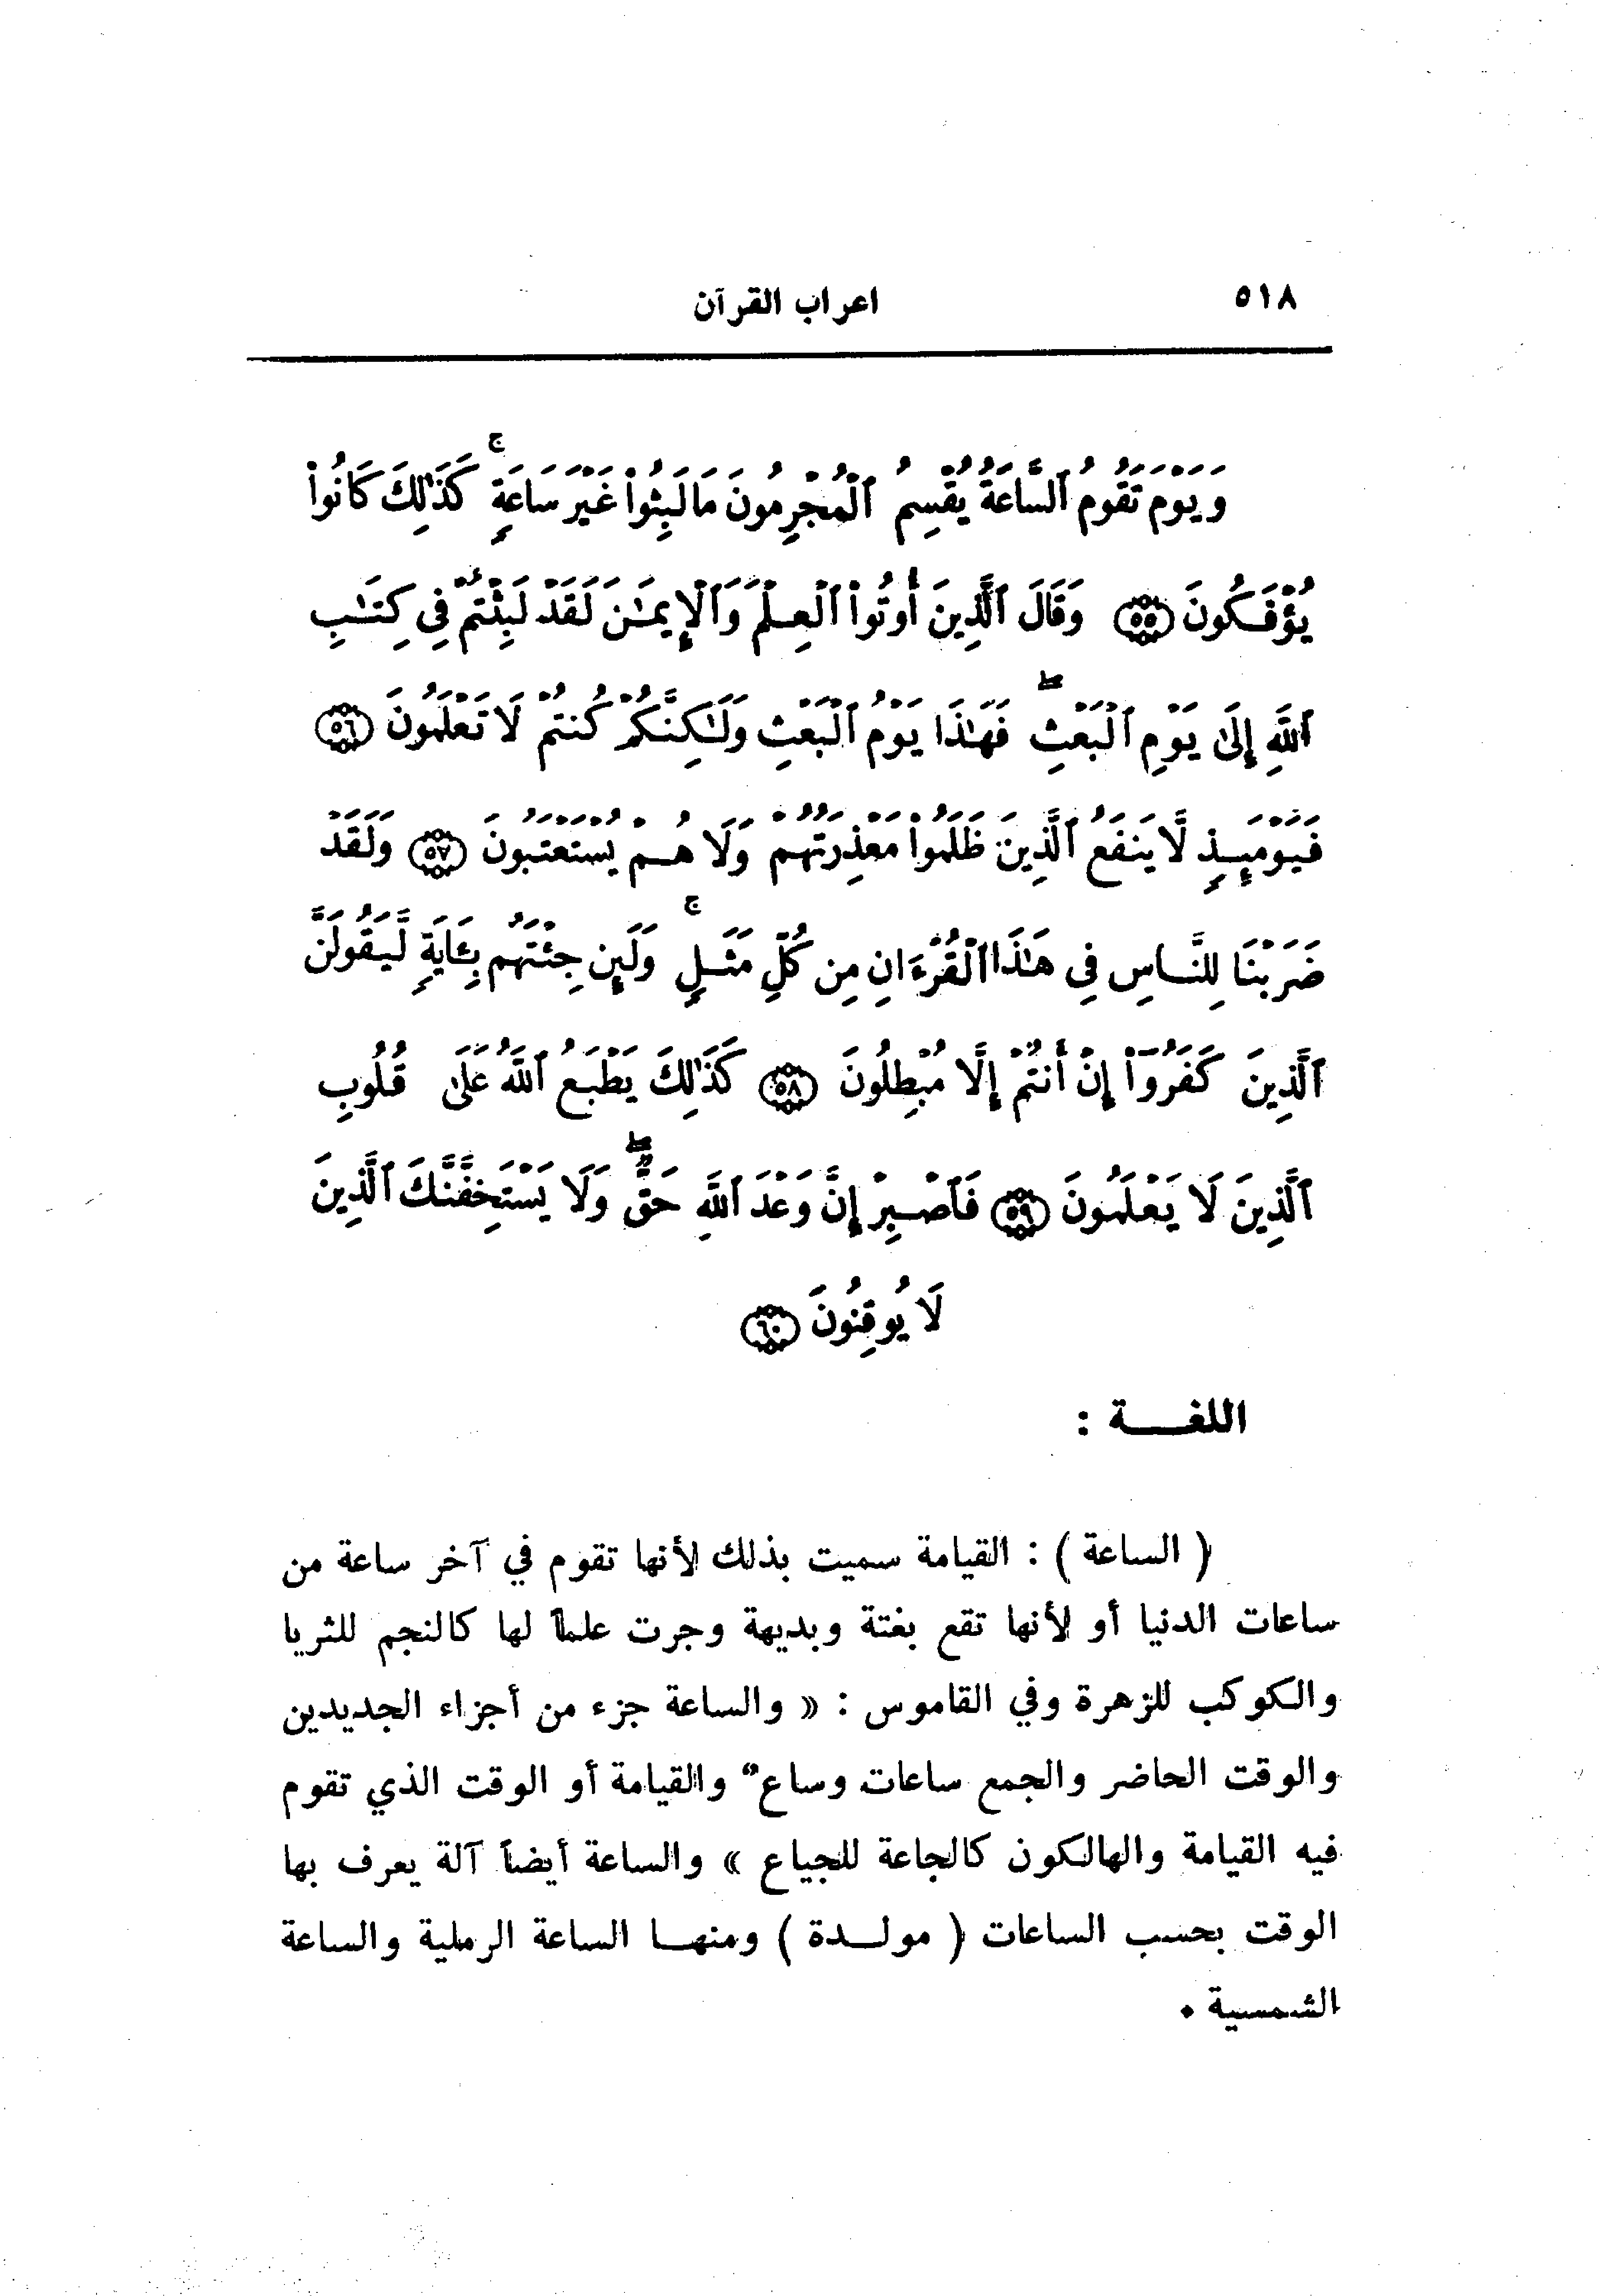 ٥١٨ اعراب القرآن
وَيَوْمَ تَقُومُ ٱلسَّاعَةُ يُقْسِمُ ٱلْمُجْرِمُونَ مَا لَبِثُوا۟ غَيْرَ سَاعَةٍ ۚ كَذَٰلِكَ كَانُوا۟
يُؤْفَكُونَ ۝٥٥ وَقَالَ ٱلَّذِينَ أُوتُوا۟ ٱلْعِلْمَ وَٱلْإِيمَٰنَ لَقَدْ لَبِثْتُمْ فِى كِتَٰبِ
ٱللَّهِ إِلَىٰ يَوْمِ ٱلْبَعْثِ ۖ فَهَٰذَا يَوْمُ ٱلْبَعْثِ وَلَٰكِنَّكُمْ كُنتُمْ لَا تَعْلَمُونَ ۝٥٦
فَيَوْمَئِذٍ لَّا يَنفَعُ ٱلَّذِينَ ظَلَمُوا۟ مَعْذِرَتُهُمْ وَلَا هُمْ يُسْتَعْتَبُونَ ۝٥٧ وَلَقَدْ
ضَرَبْنَا لِلنَّاسِ فِى هَٰذَا ٱلْقُرْءَانِ مِن كُلِّ مَثَلٍ ۚ وَلَئِن جِئْتَهُم بِـَٔايَةٍ لَّيَقُولَنَّ
ٱلَّذِينَ كَفَرُوٓا۟ إِنْ أَنتُمْ إِلَّا مُبْطِلُونَ ۝٥٨ كَذَٰلِكَ يَطْبَعُ ٱللَّهُ عَلَىٰ قُلُوبِ
ٱلَّذِينَ لَا يَعْلَمُونَ ۝٥٩ فَٱصْبِرْ إِنَّ وَعْدَ ٱللَّهِ حَقٌّ ۖ وَلَا يَسْتَخِفَّنَّكَ ٱلَّذِينَ
لَا يُوقِنُونَ ۝٦٠
اللغــــة :
( الساعة ) : القيامة سميت بذلك لأنها تقوم في آخر ساعة من
ساعات الدنيا أو لأنها تقع بغتة وبديهة وجرت علماً لها كالنجم للثريا
والكوكب للزهرة وفي القاموس : « والساعة جزء من أجزاء الجديدين
والوقت الحاضر والجمع ساعات وساعٌ والقيامة أو الوقت الذي تقوم
فيه القيامة والهالكون كالجاعة للجياع » والساعة أيضاً آلة يعرف بها
الوقت بحسب الساعات ( مولــدة ) ومنهــا الساعة الرملية والساعة
الشمسية .